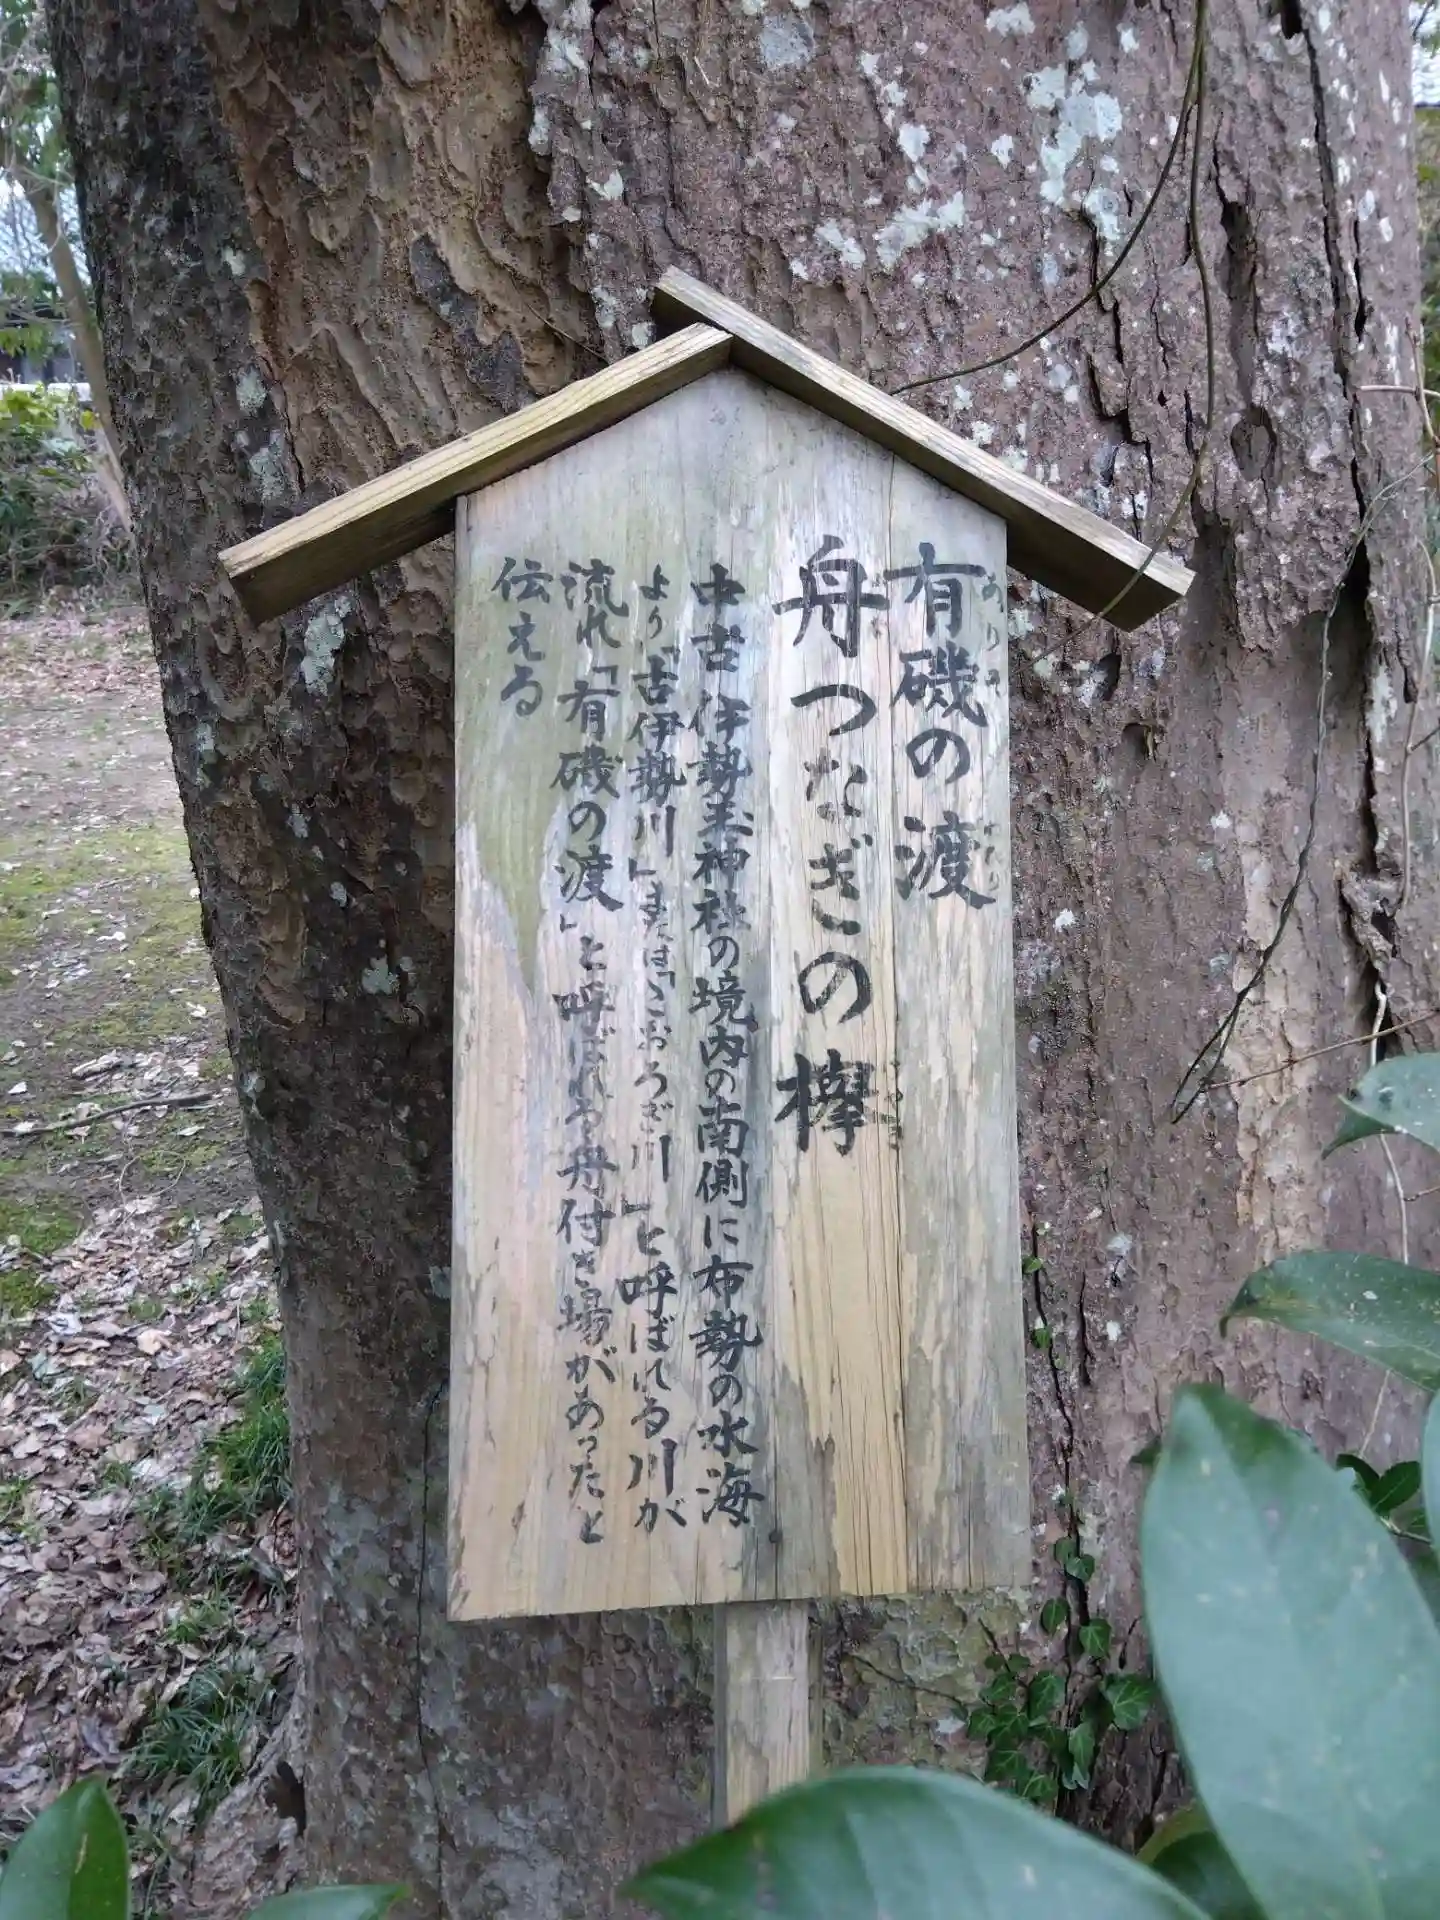 有磯の渡
ありそ
わたり
舟つなぎの欅
けやき
中古伊勢玉神社の境内の南側に布勢の水海
より「古伊勢川」または「こおろぎ川」と呼ばれる川が
流れ「有磯の渡」と呼ばれる舟付き場があったと
伝える